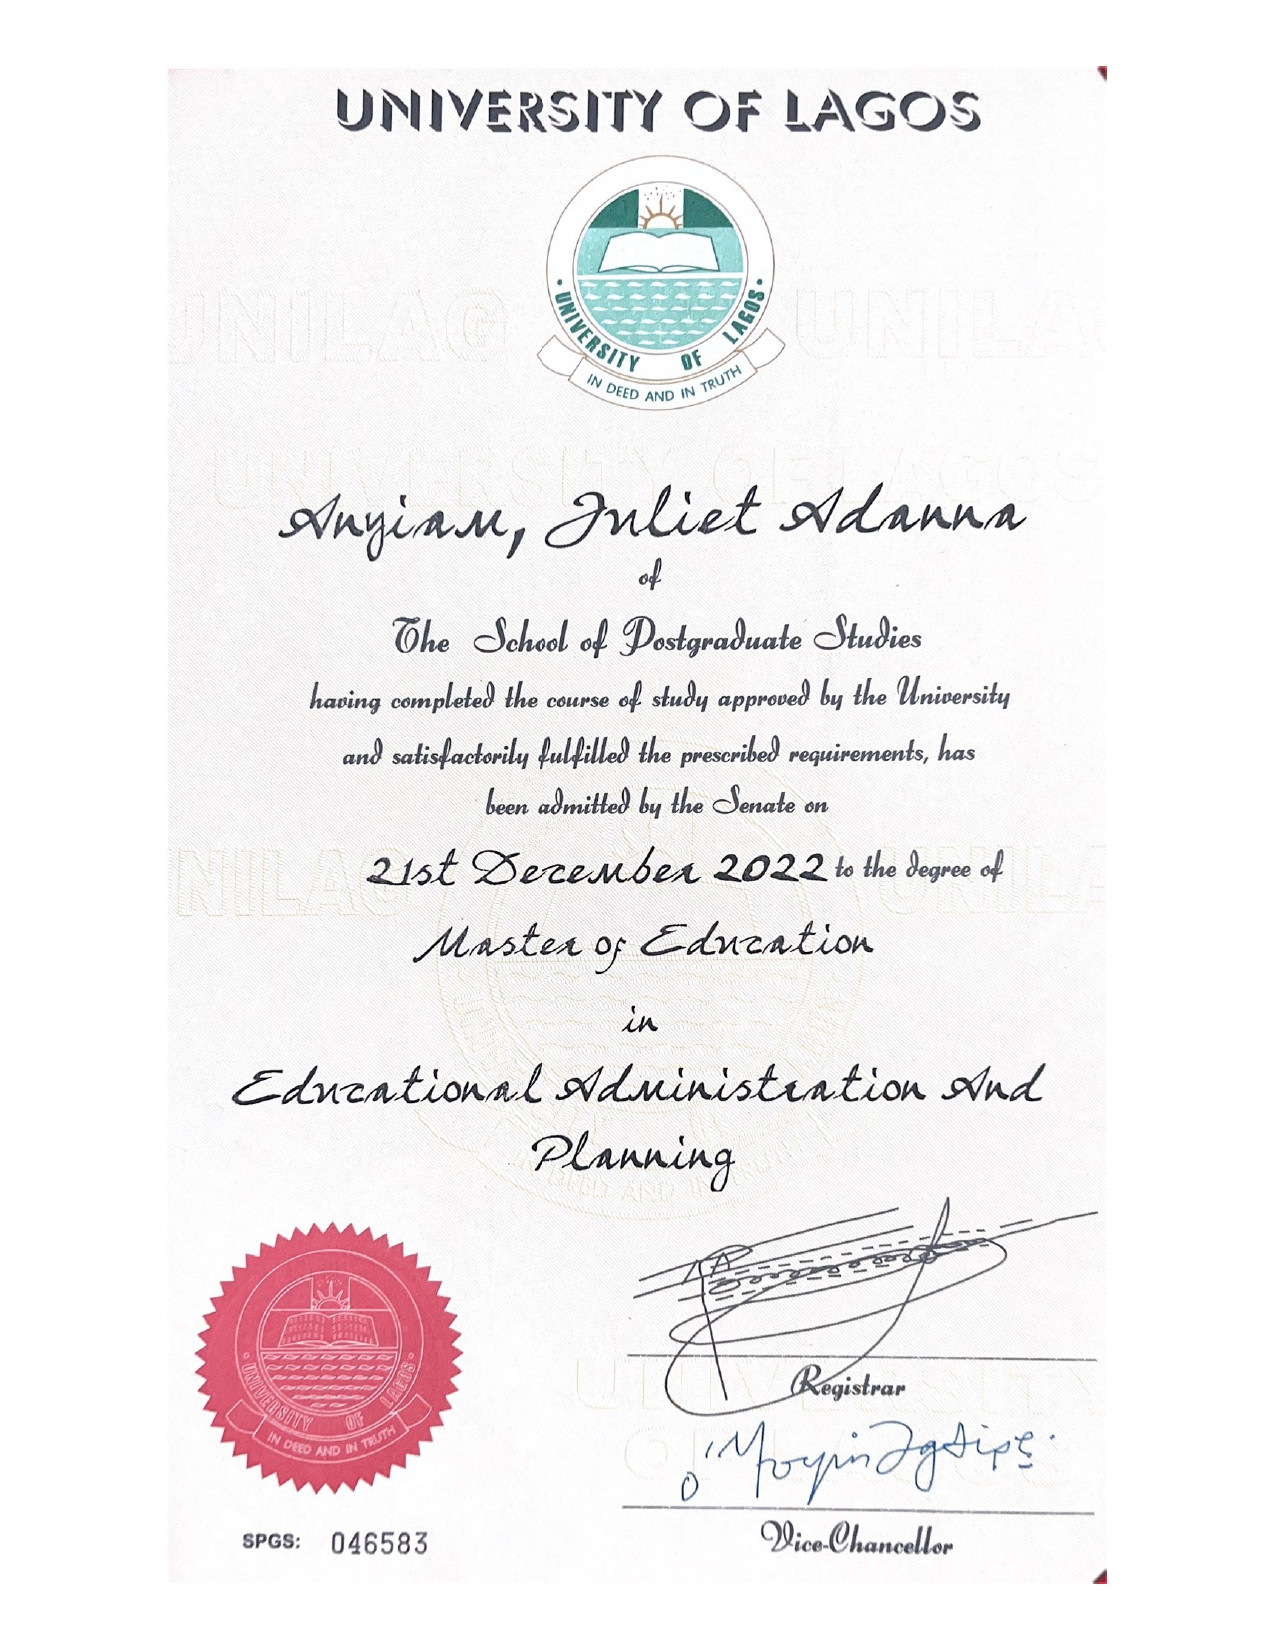 UNIVERSITY OF LAGOS
UNIVERSITY OF LAGOS
IN DEED AND IN TRUTH
UNILAG UNILAG
UNIVERSITY OF LAGOS
Anyiam, Juliet Adanna
of
The School of Postgraduate Studies
having completed the course of study approved by the University
and satisfactorily fulfilled the prescribed requirements, has
been admitted by the Senate on
21st December 2022 to the degree of
Master of Education
in
Educational Administration And
Planning
UNIVERSITY OF LAGOS
IN DEED AND IN TRUTH
Registrar
Vice-Chancellor
SPGS: 046583